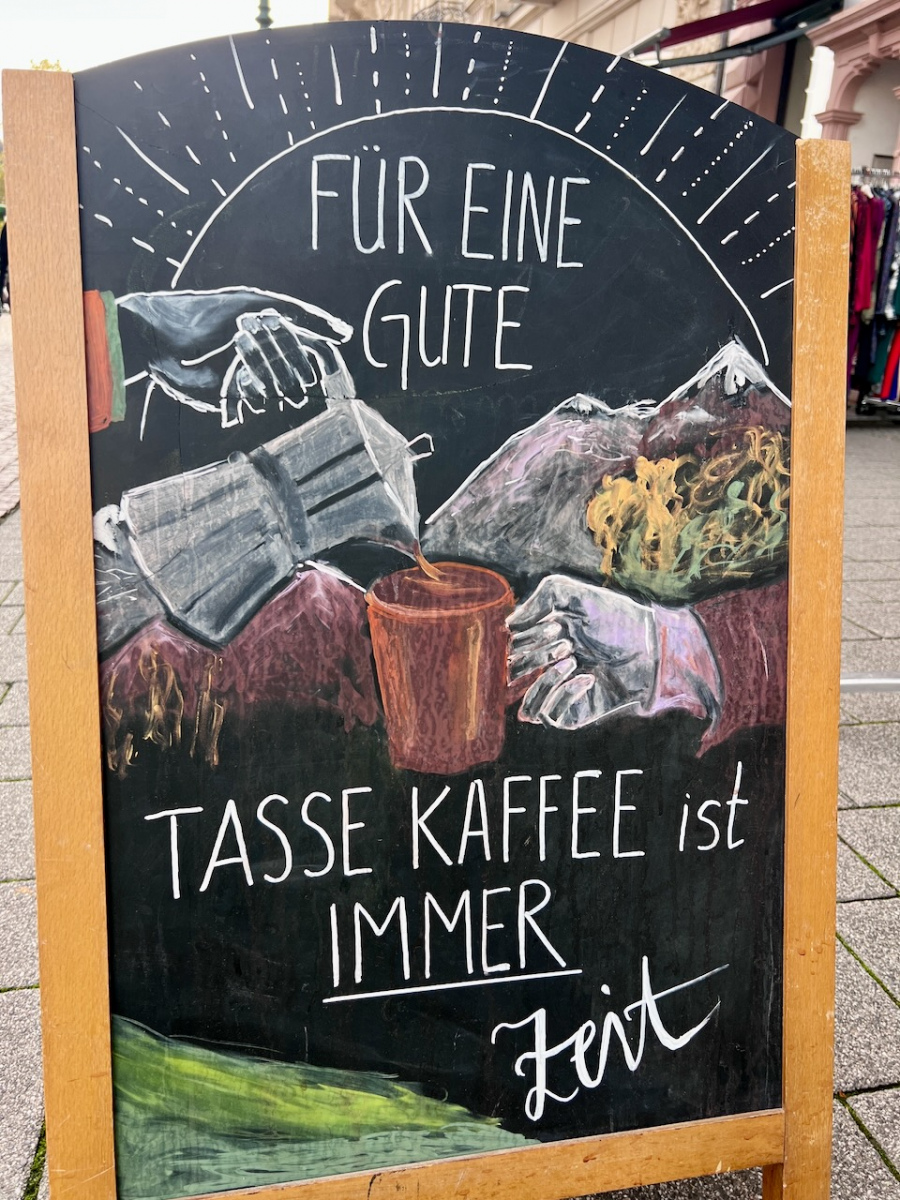 FÜR EINE
GUTE
TASSE KAFFEE ist
IMMER
Zeit